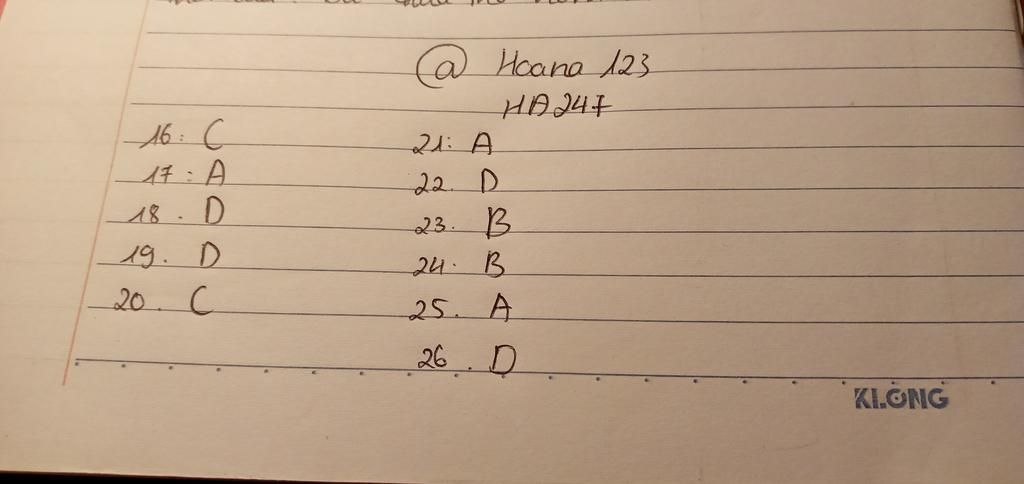 @ Hoana 123
HA247
16: C
17: A
18. D
19. D
20. C
21: A
22. D
23. B
24. B
25. A
26. D
KLONG